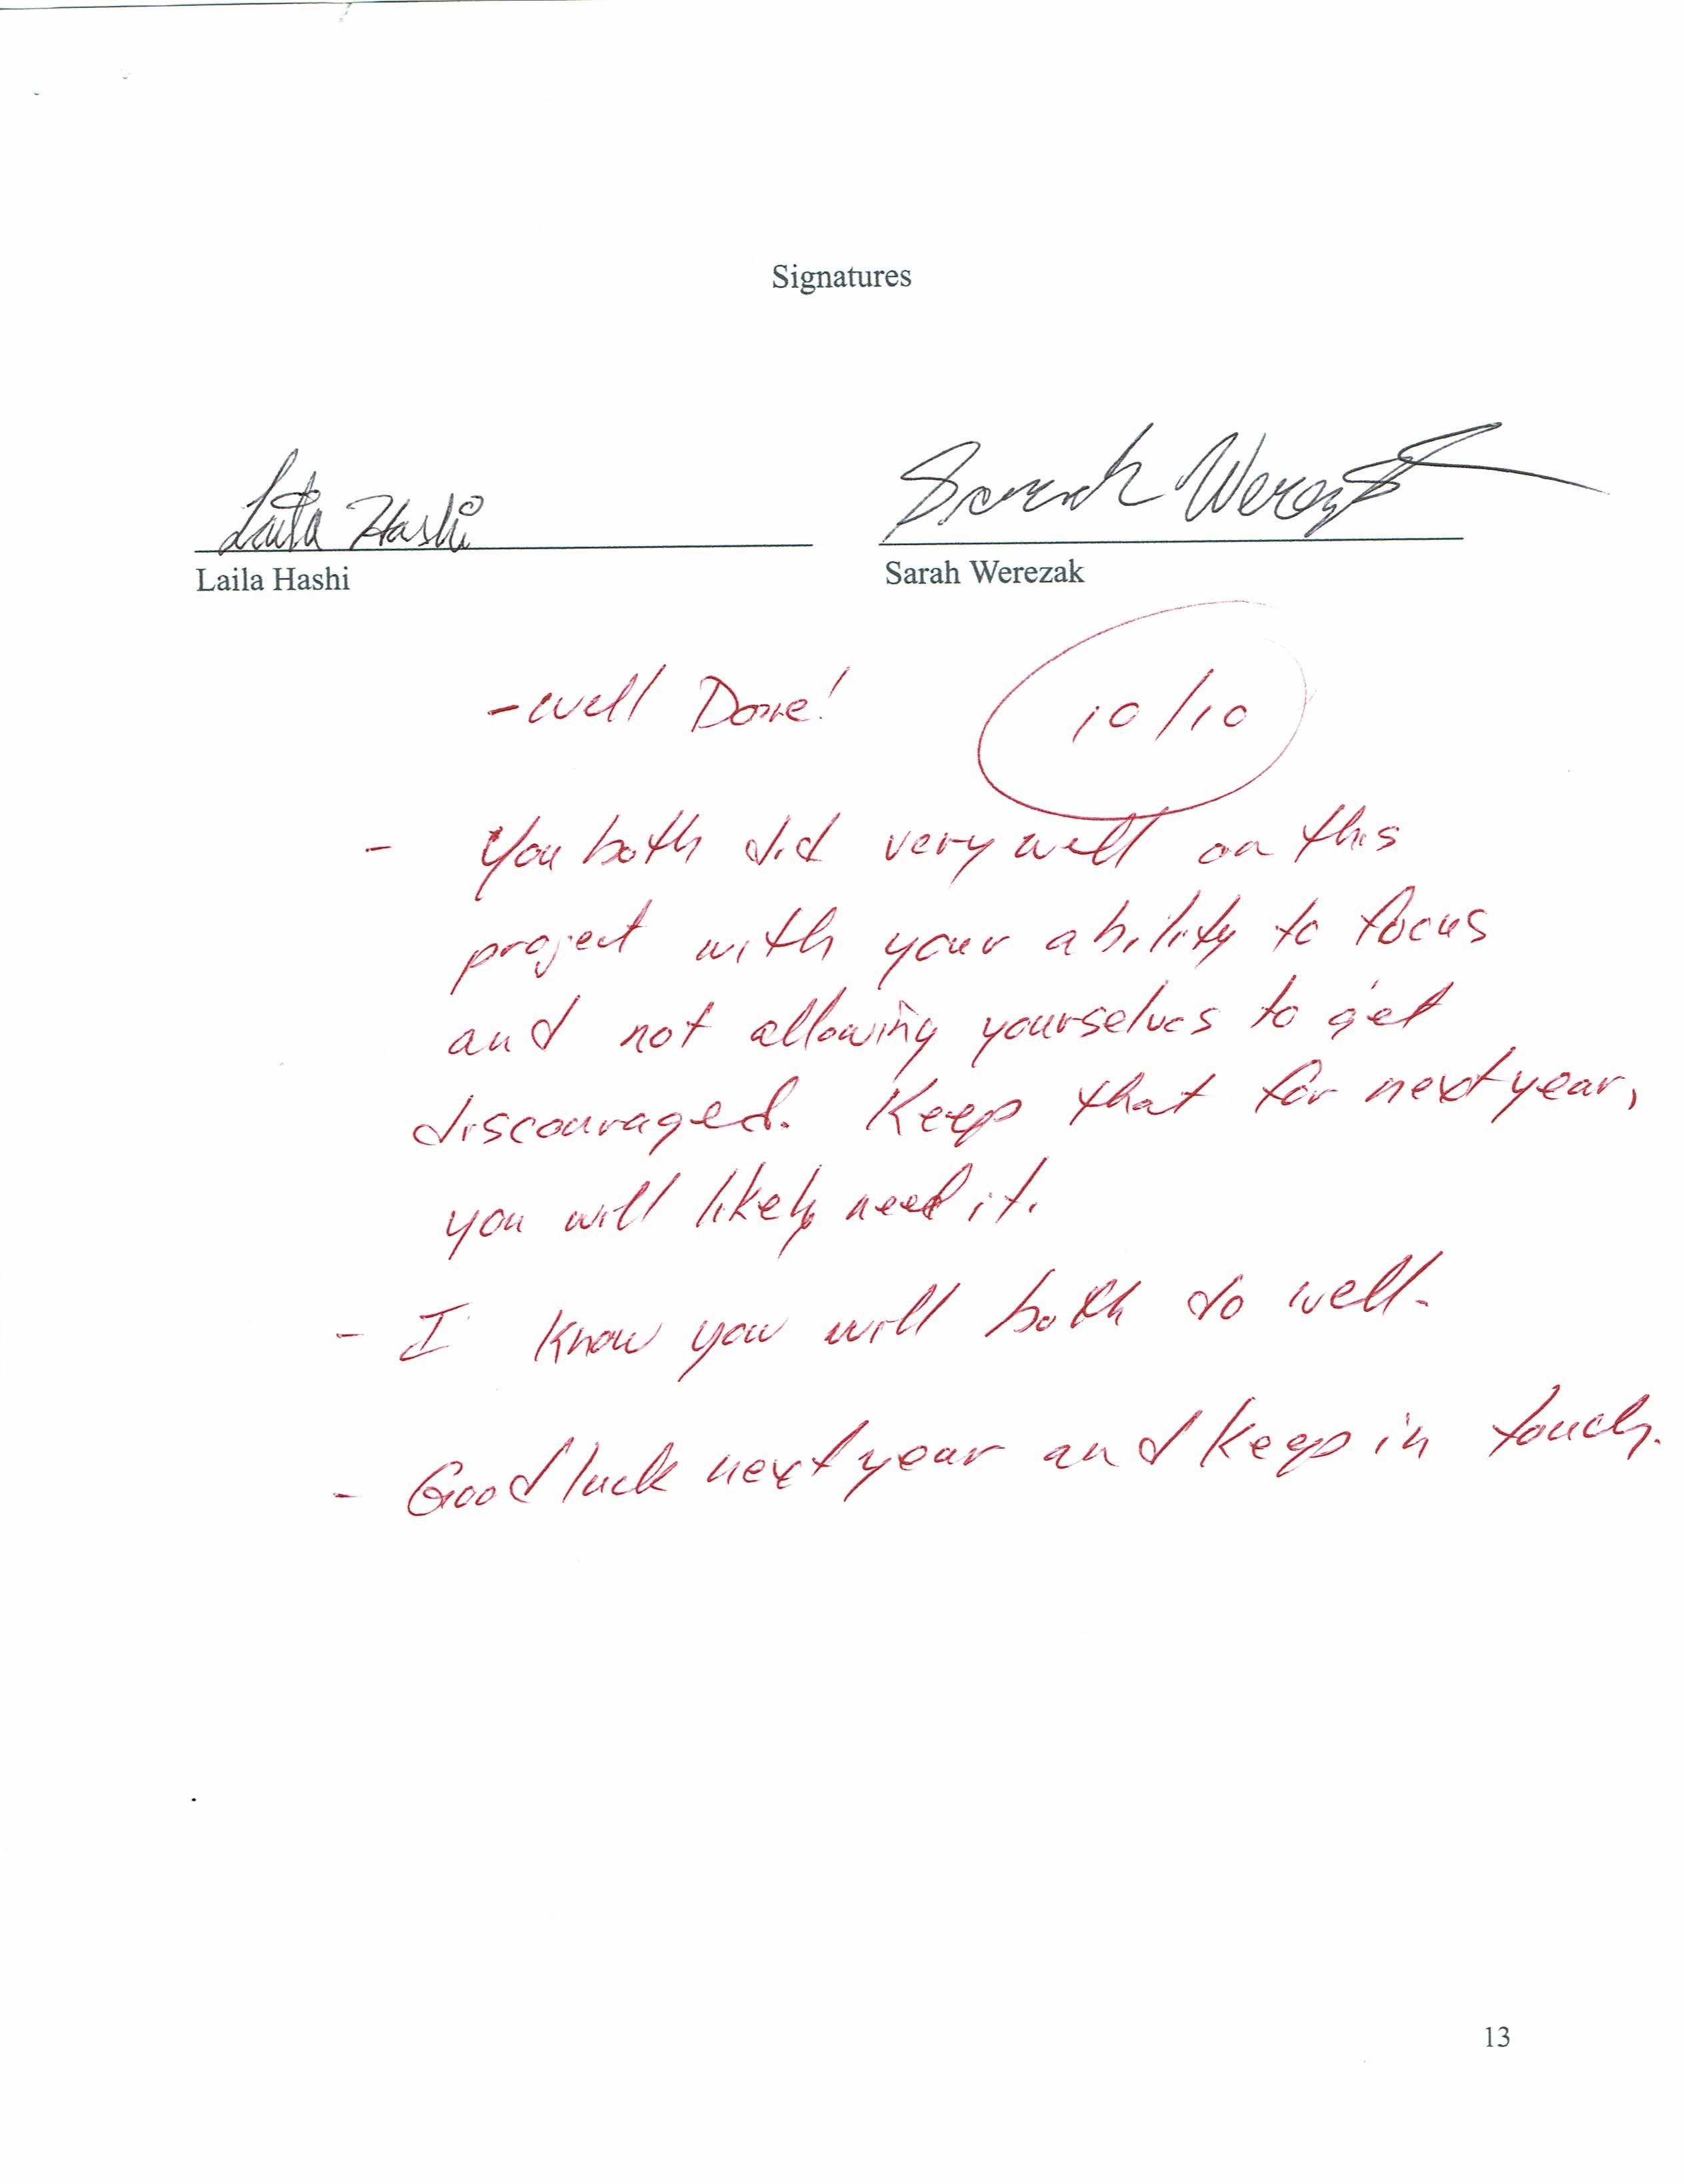 Signatures
Laila Hashi Sarah Werezak
Laila Hashi Sarah Werezak
- well Done! 10/10
- You both did very well on this
project with your ability to focus
and not allowing yourselves to get
discouraged. Keep that for next year,
you will likely need it.
- I know you will both do well.
- Good luck next year and keep in touch.
13